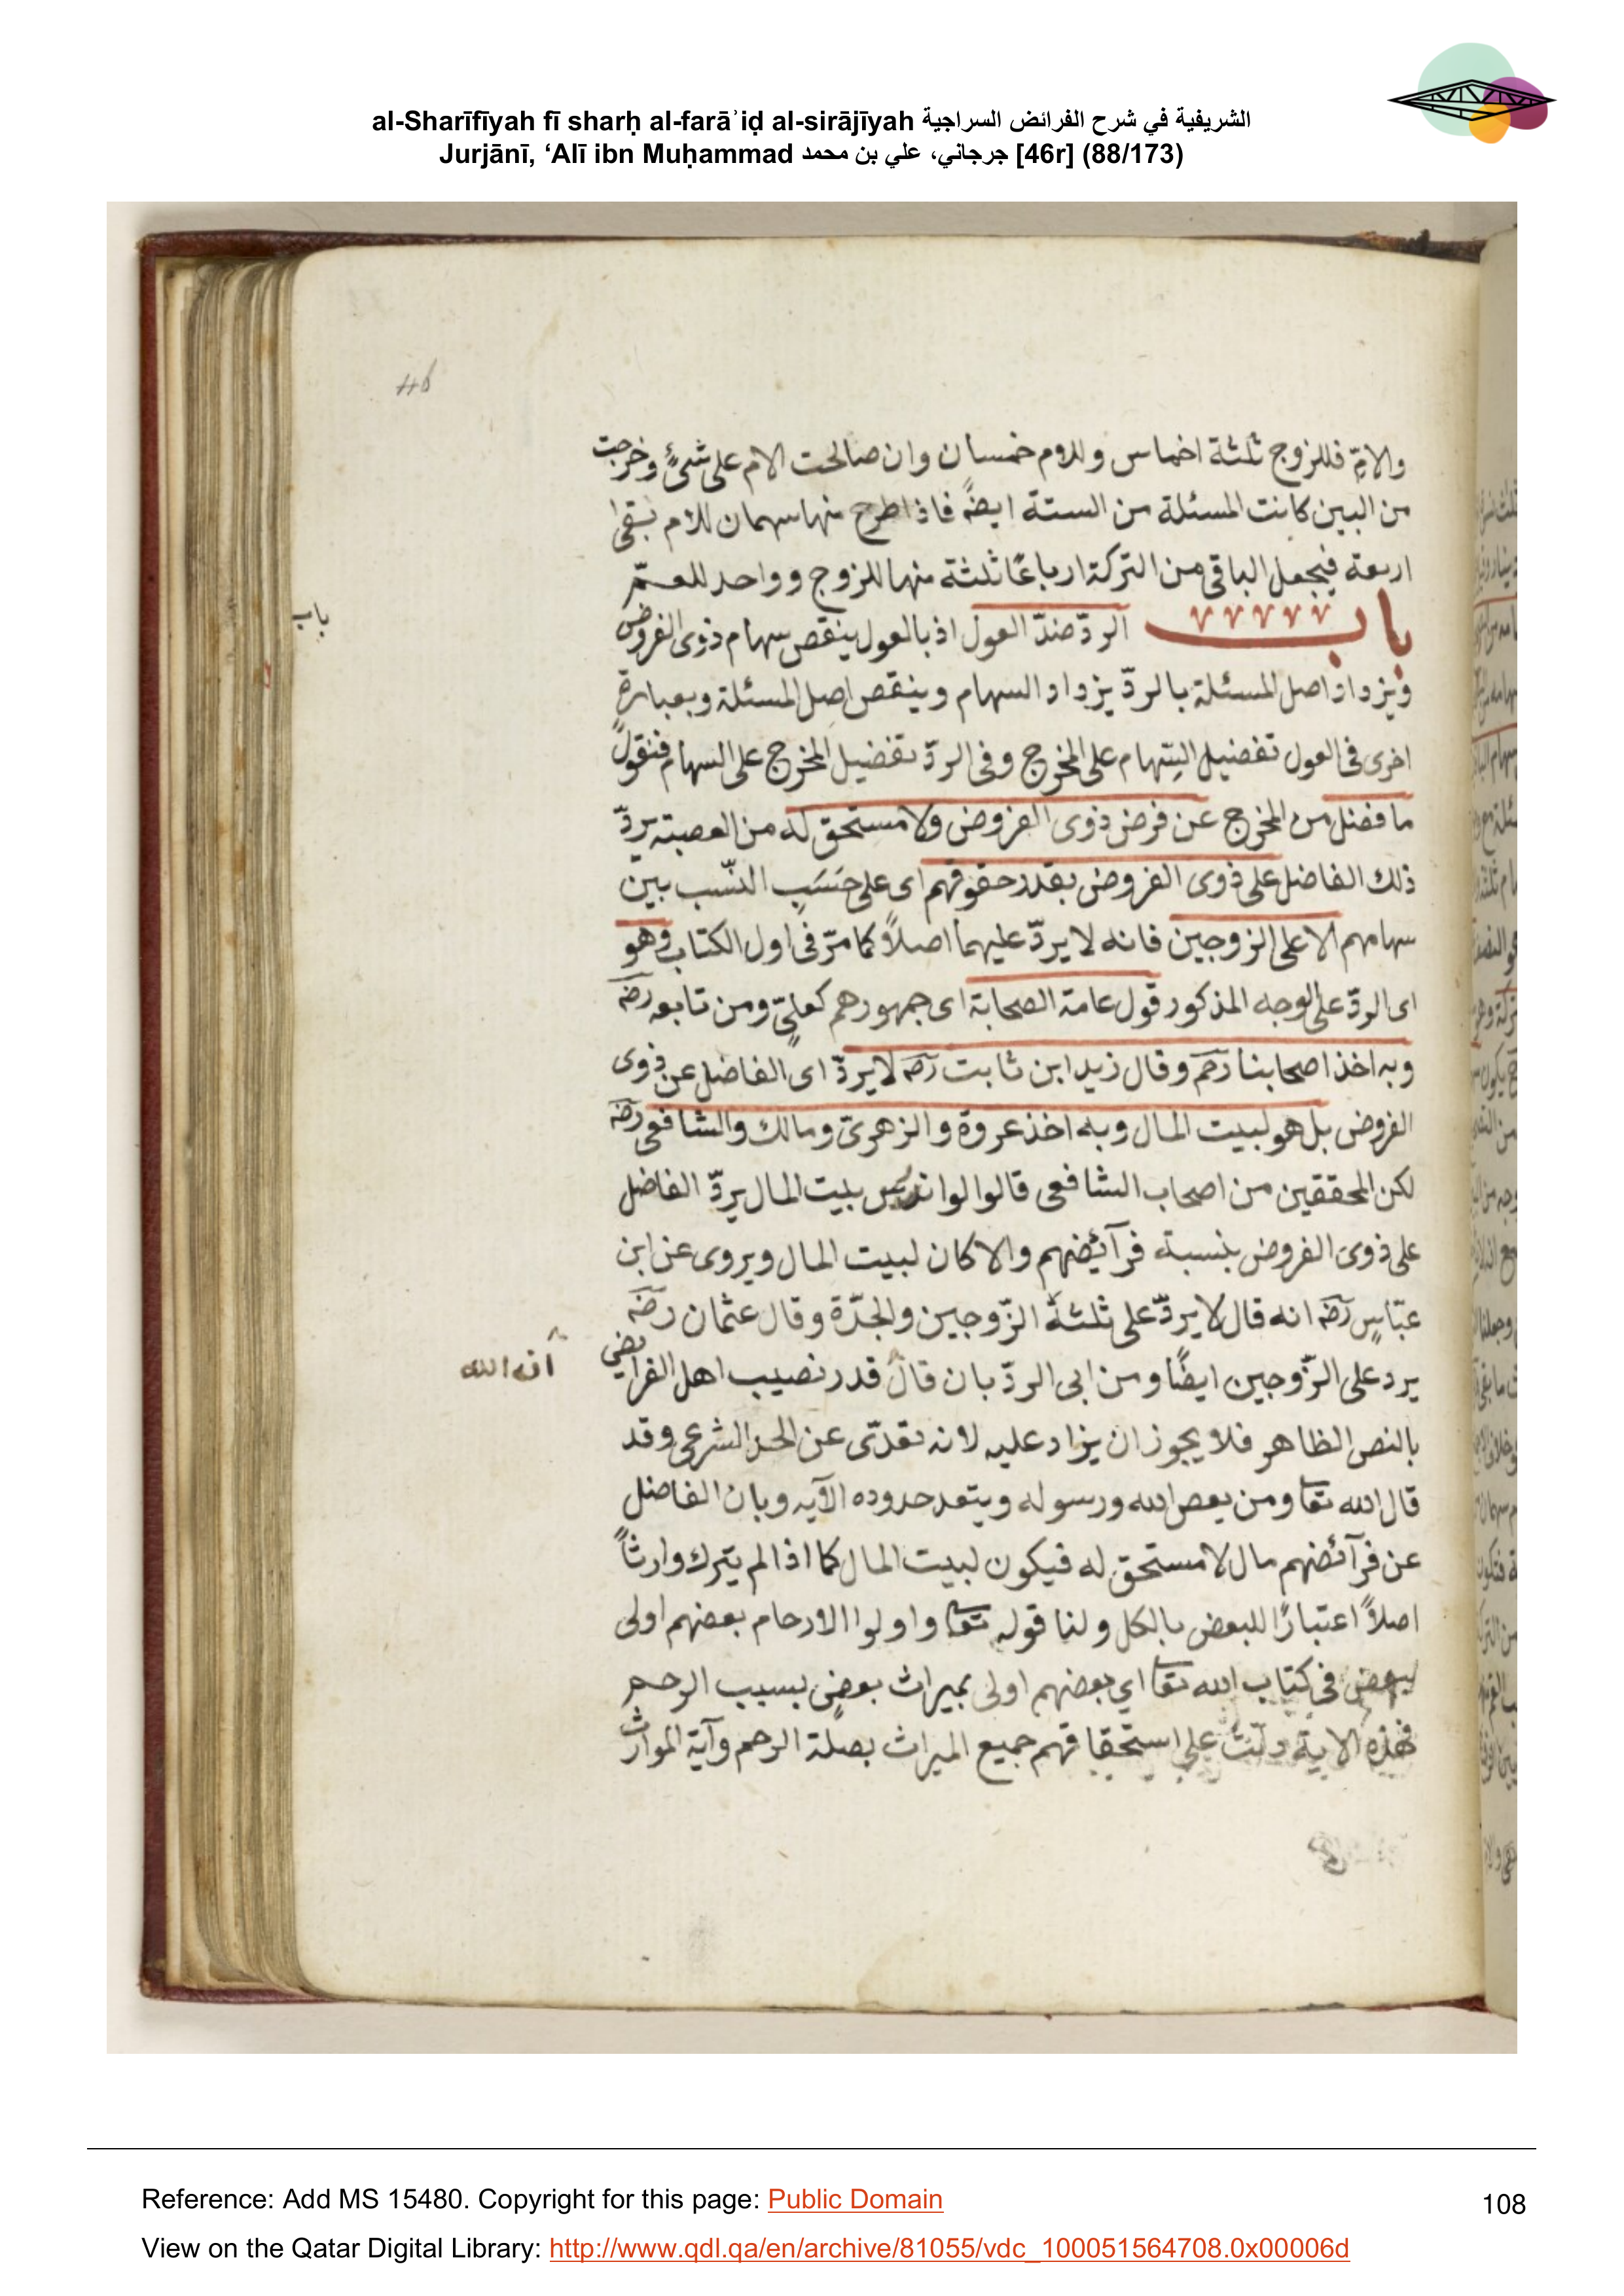 al-Sharīfīyah fī sharḥ al-farāʾiḍ al-sirājīyah الشريفية في شرح الفرائض السراجية
Jurjānī, ‘Alī ibn Muḥammad جرجاني، علي بن محمد [46r] (88/173)
46
والامّ فللزوج ثلثة اخماس وللام خمسان وان صالحت الام على شئٍ وخرجت
من البين كانت المسئلة من الستة ايضً فاذا طرح منها سهمان للام بقى
اربعة فيجعل الباقى من التركة ارباعًا ثلثة منها للزوج وواحد للعمّ
باب الردّ ضدّ العول اذ بالعول ينقص سهام ذوى الفروض
باب
ويزداد اصل المسئلة بالردّ يزداد السهام وينقص اصل المسئلة وبعبارة
اخرى فى العول تفضيل السّهام على المخرج وفى الردّ تفضيل المخرج على السهام فنقول
ما فضل من المخرج عن فرض ذوى الفروض ولا مستحق له من العصبته يردّ
ذلك الفاضل على ذوى الفروض بقدر حقوقهم اى على حَسَبِ النّسب بين
سهامهم الا على الزوجين فانه لا يردّ عليهما اصلاً كما مرّ فى اول الكتاب وهو
اى الردّ على الوجه المذكور قول عامة الصحابة اى جمهورهم كعلىٍّ ومن تابعه رضه
وبه اخذ اصحابنا رحم وقال زيد ابن ثابت رضه لا يردّ اى الفاضل عن ذوى
الفروض بل هو لبيت المال وبه اخذ عروة والزهرىّ ومالك والشافعى رضه
لكن المحققين من اصحاب الشافعى قالوا لو اندرس بيت المال يردّ الفاضل
على ذوى الفروض بنسبة فرآئضهم والا كان لبيت المال ويروى عن ابن
عبّاسٍ رضه انه قال لا يردّ على ثلثةٌ الزّوجين والجدّة وقال عثمان رضه
يرد على الزّوجين ايضًا ومن ابى الردّ بان قال قدر نصيب اهل الفرآيض
انه الله
بالنص الظاهر فلا يجوز ان يزاد عليه لانه تعدّى عن الحد الشرعى وقد
قال الله تعا ومن يعص الله ورسوله ويتعد حدوده الآيه وبان الفاضل
عن فرآئضهم مال لا مستحق له فيكون لبيت المال كما اذا لم يترك وارثاً
اصلاً اعتبارًا للبعض بالكل ولنا قوله تعا واولوا الارحام بعضهم اولى
ببعض فى كتاب الله تعا اي بعضهم اولى بميراث بعضٍ بسبب الرحم
فهذه الاية دلّت على استحقاقهم جميع الميراث بصلة الرحم وآية المواريث
Reference: Add MS 15480. Copyright for this page: Public Domain
108
View on the Qatar Digital Library: http://www.qdl.qa/en/archive/81055/vdc_100051564708.0x00006d